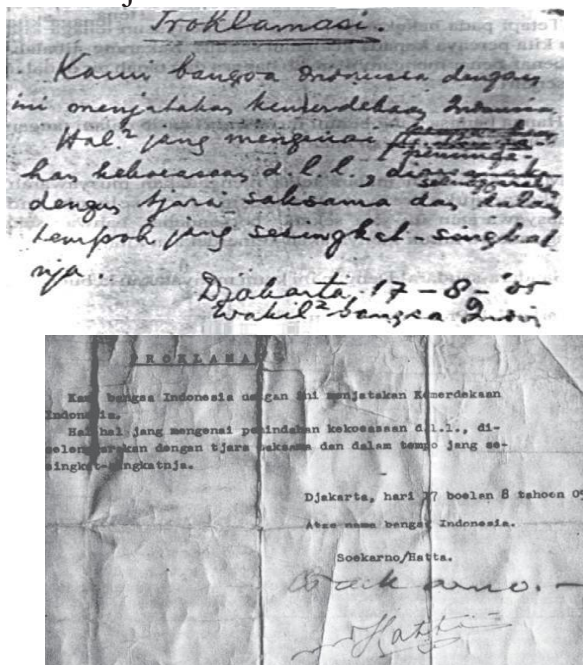 Proklamasi.
Kami bangsa Indonesia dengan
ini menjatakan kemerdekaan Indonesia.
Hal² jang mengenai
peminda-
han kekoeasaan d.l.l.,
dengan tjara saksama dan dalam
tempoh jang sesingkat-singkat
nja.
Djakarta, 17 - 8 - '05
Wakil² bangsa Indon
PROKLAMA
Kami bangsa Indonesia dengan ini menjatakan Kemerdekaan
Indonesia.
Hal hal jang mengenai pemindahan kekoeasaan d.l.l., di-
selenggarakan dengan tjara saksama dan dalam tempo jang se-
singkat-singkatnja.
Djakarta, hari 17 boelan 8 tahoen 05
Atas nama bangsa Indonesia.
Soekarno/Hatta.
Soekarno.-
Hatta